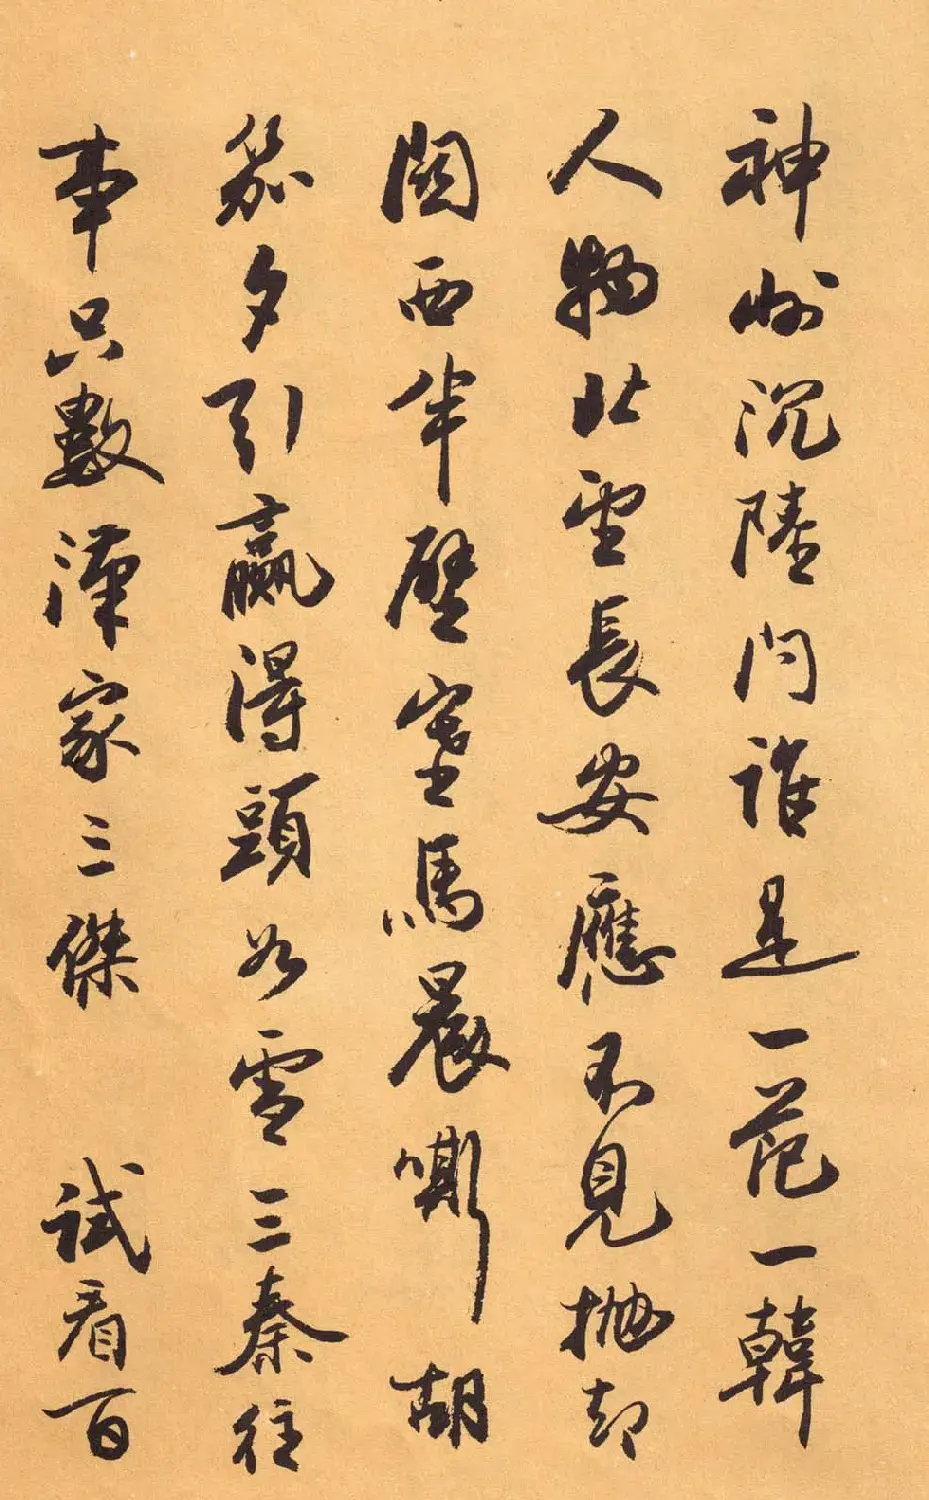 神州沉陸問誰是一范一韓
人物北望長安應不見抛却
關西半壁塞馬晨嘶胡
笳夕引贏得頭如雪三秦往
事只數漢家三傑試看百